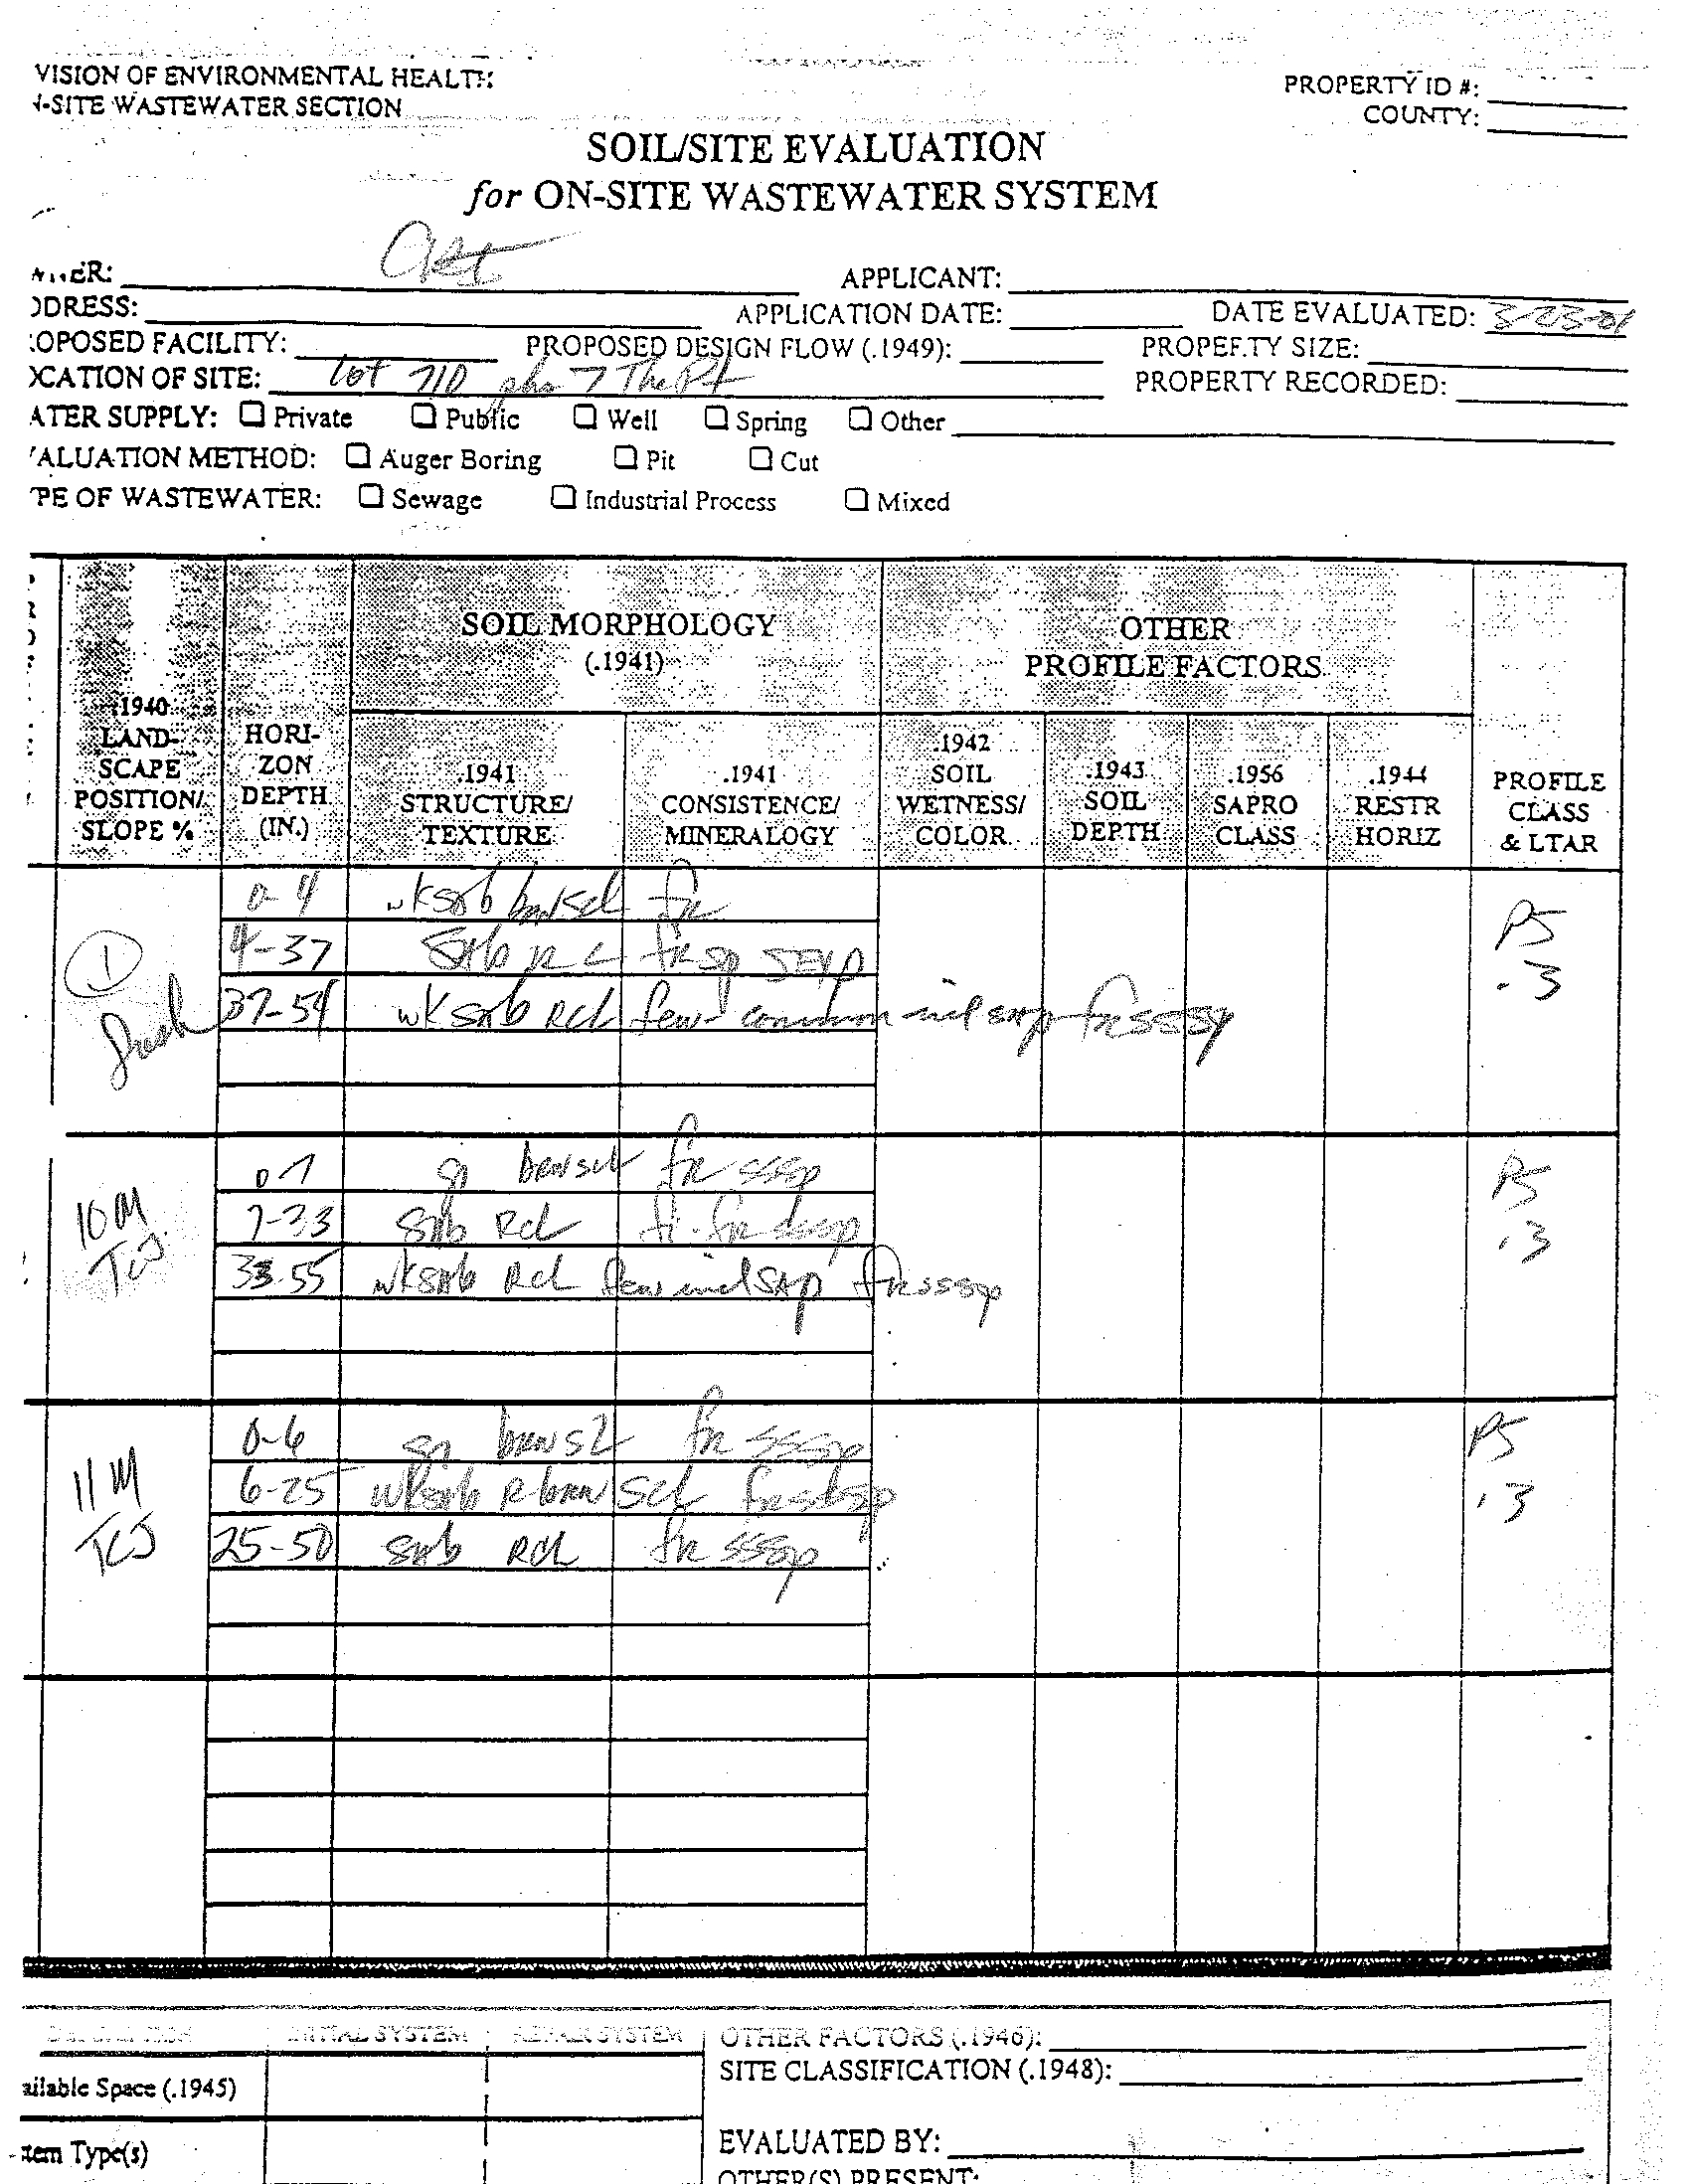 VISION OF ENVIRONMENTAL HEALTH
N-SITE WASTEWATER SECTION
PROPERTY ID #:
COUNTY:
SOIL/SITE EVALUATION
for ON-SITE WASTEWATER SYSTEM
NER:
APPLICANT:
DDRESS:
APPLICATION DATE:
DATE EVALUATED: 3-23-01
OPOSED FACILITY:
PROPOSED DESIGN FLOW (.1949):
PROPERTY SIZE:
OCATION OF SITE: Lot 710 phs 7 The Pt
PROPERTY RECORDED:
ATER SUPPLY: ☐ Private ☐ Public ☐ Well ☐ Spring ☐ Other
ALUATION METHOD: ☐ Auger Boring ☐ Pit ☐ Cut
PE OF WASTEWATER: ☐ Sewage ☐ Industrial Process ☐ Mixed
SOIL MORPHOLOGY
(.1941)
OTHER
PROFILE FACTORS
.1940
LAND-
SCAPE
POSITION/
SLOPE %
HORI-
ZON
DEPTH
(IN.)
.1941
STRUCTURE/
TEXTURE
.1941
CONSISTENCE/
MINERALOGY
.1942
SOIL
WETNESS/
COLOR
.1943
SOIL
DEPTH
.1956
SAPRO
CLASS
.1944
RESTR
HORIZ
PROFILE
CLASS
& LTAR
1
0-4 wksbb brnscl fr
4-37 sbb R C fr sp SEXP
37-54 wk sbb Rcl few - common incl sap fr sssp
PS
.3
10 M
TCJ
0-7 gr brnscl fr sssp
7-33 sbb Rcl fi-fr sssp
33-55 wksbb Rcl few incl sap fr sssp
PS
.3
11 M
TCJ
0-6 gr brn sl fr sssp
6-25 wksbb R-brn scl fr sssp
25-50 sbb Rcl fr sssp
PS
.3
INITIAL SYSTEM REPAIR SYSTEM
OTHER FACTORS (.1946):
SITE CLASSIFICATION (.1948):
ailable Space (.1945)
EVALUATED BY:
tem Type(s)
OTHER(S) PRESENT: